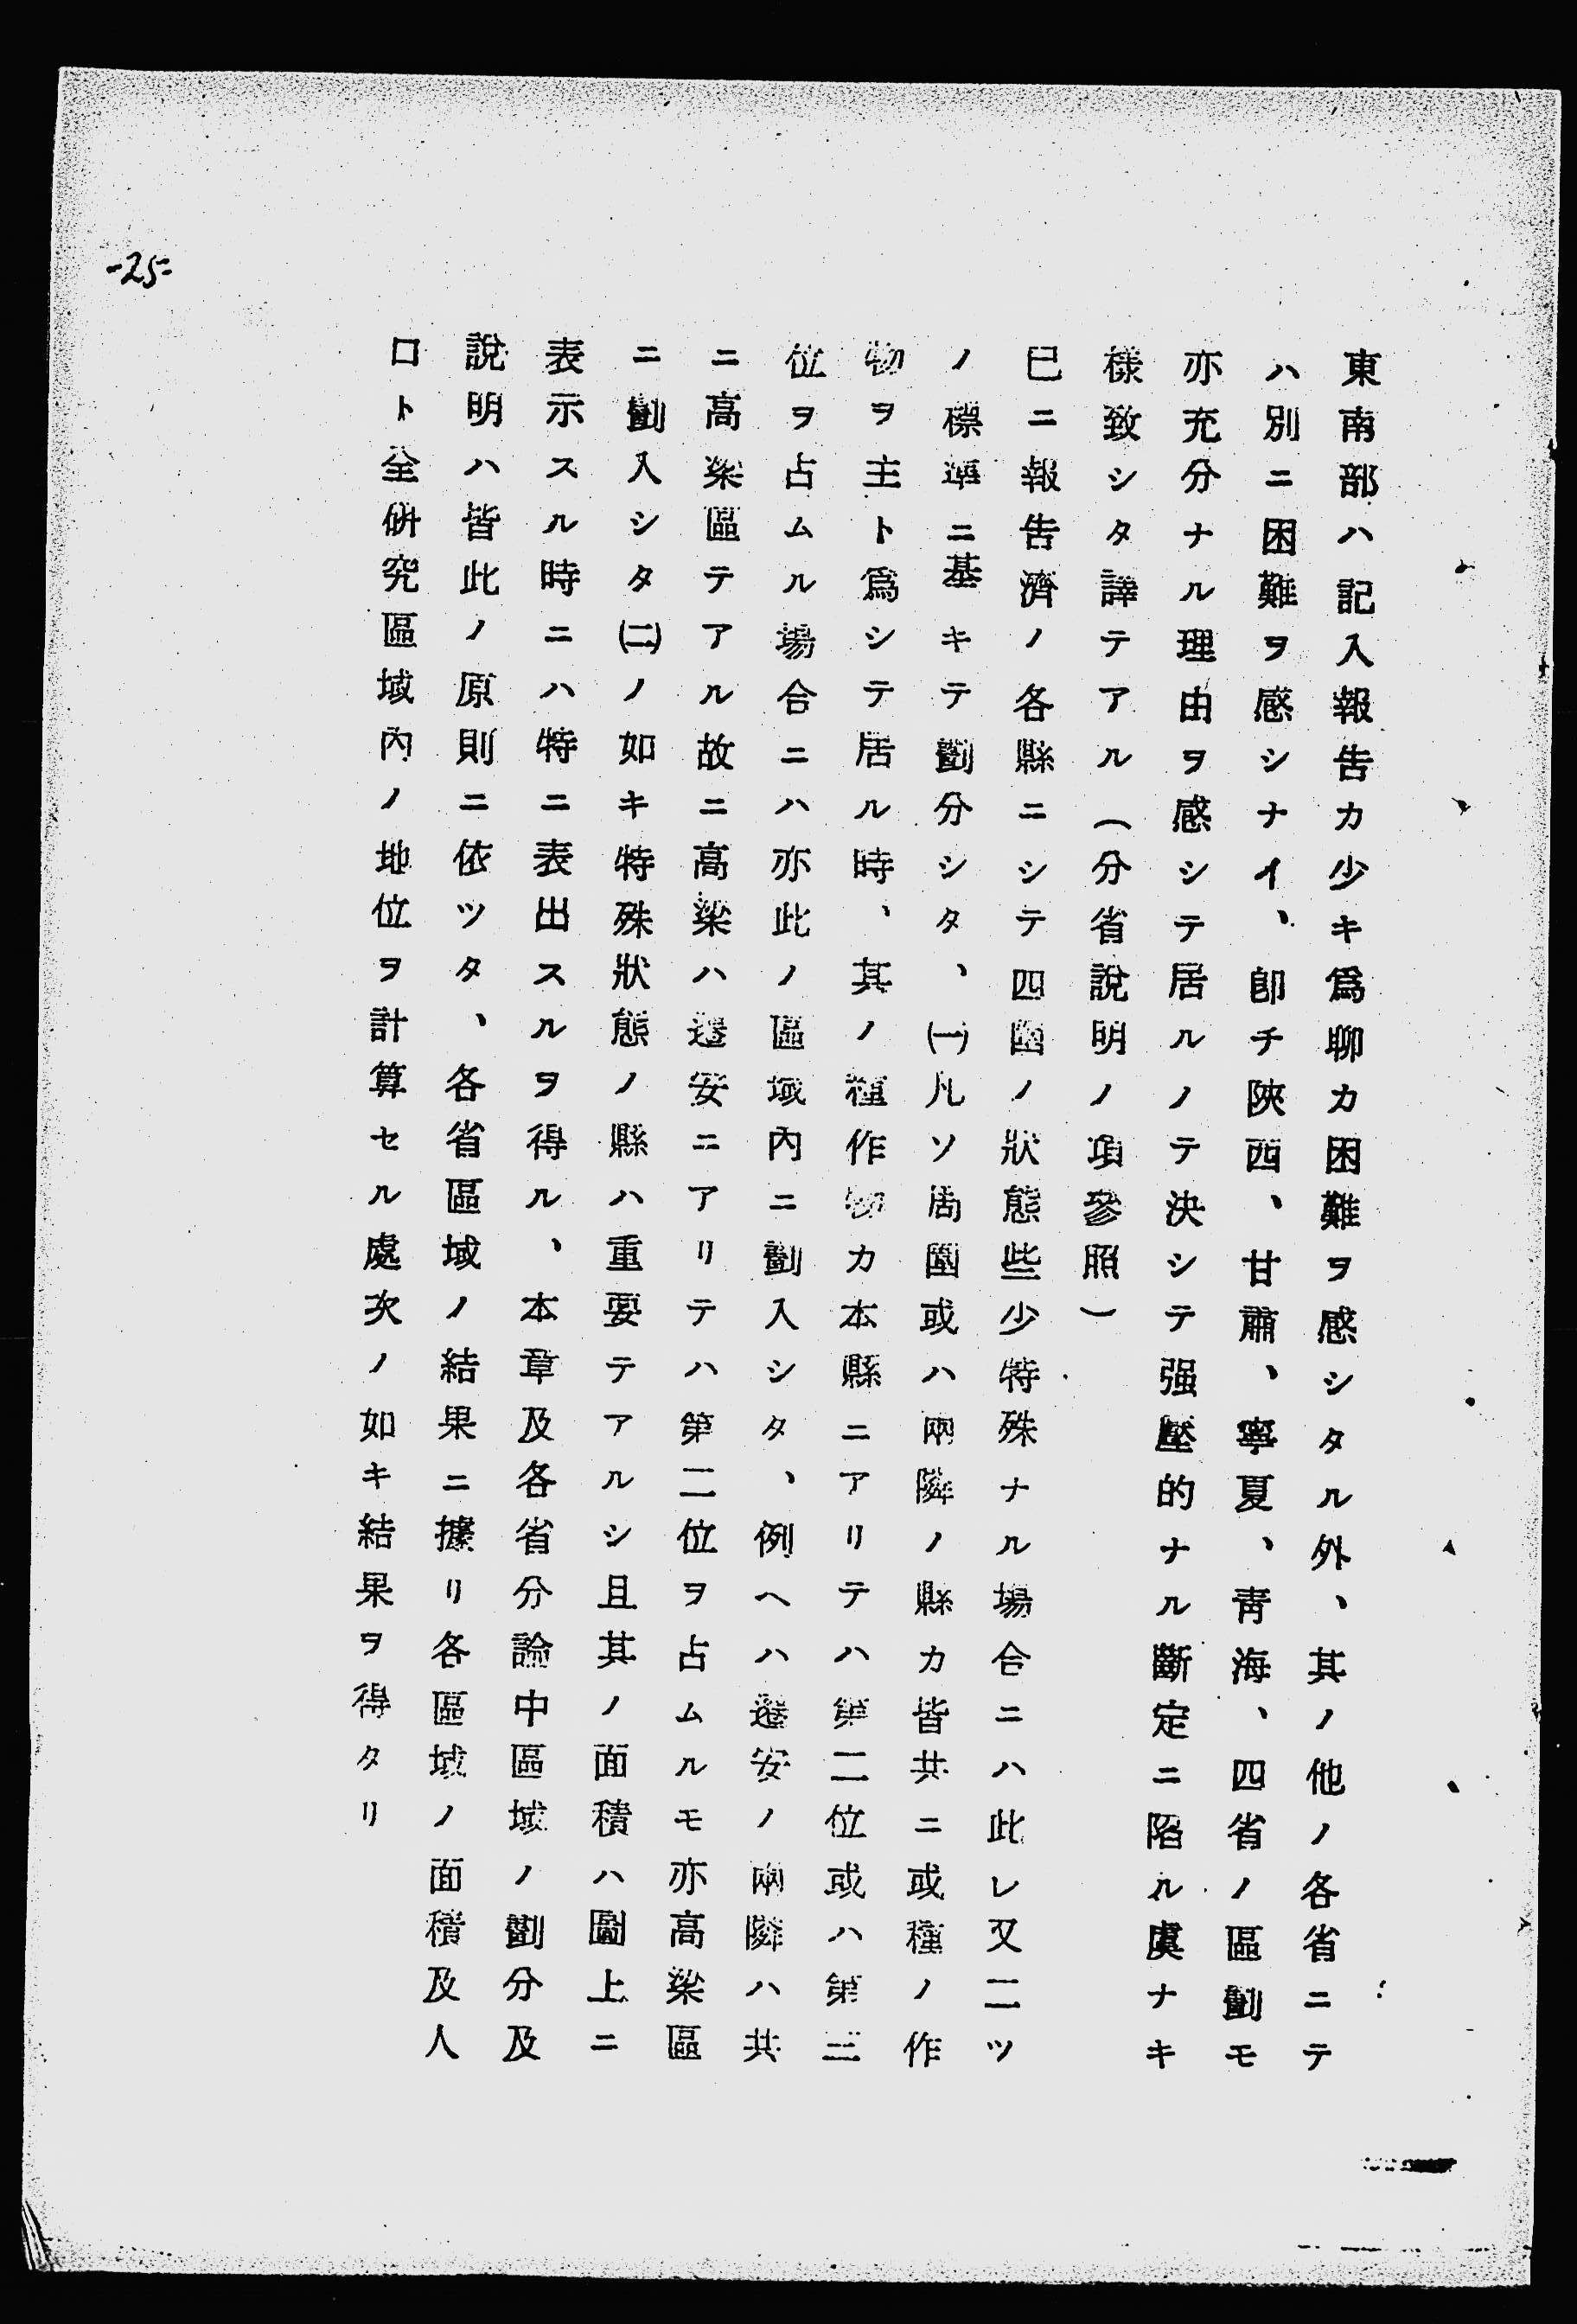 東南部ハ記入報告カ少キ爲聊カ困難ヲ感シタル外、其ノ他ノ各省ニテ
ハ別ニ困難ヲ感シナイ、卽チ陝西、甘肅、寧夏、青海、四省ノ區劃モ
亦充分ナル理由ヲ感シテ居ルノテ決シテ强壓的ナル斷定ニ陷ル虞ナキ
樣致シタ譯テアル（分省說明ノ項參照）
已ニ報告濟ノ各縣ニシテ四圍ノ狀態些少特殊ナル場合ニハ此レ又二ツ
ノ標準ニ基キテ劃分シタ、㈠凡ソ周圍或ハ兩隣ノ縣カ皆共ニ或種ノ作
物ヲ主ト爲シテ居ル時、其ノ種作物カ本縣ニアリテハ第二位或ハ第三
位ヲ占ムル場合ニハ亦此ノ區域內ニ劃入シタ、例ヘハ遷安ノ兩隣ハ共
ニ高粱區テアル故ニ高粱ハ遷安ニアリテハ第二位ヲ占ムルモ亦高粱區
ニ劃入シタ㈡ノ如キ特殊狀態ノ縣ハ重要テアルシ且其ノ面積ハ圖上ニ
表示スル時ニハ特ニ表出スルヲ得ル、本章及各省分論中區域ノ劃分及
說明ハ皆此ノ原則ニ依ツタ、各省區域ノ結果ニ據リ各區域ノ面積及人
口ト全硏究區域內ノ地位ヲ計算セル處次ノ如キ結果ヲ得タリ
-25-